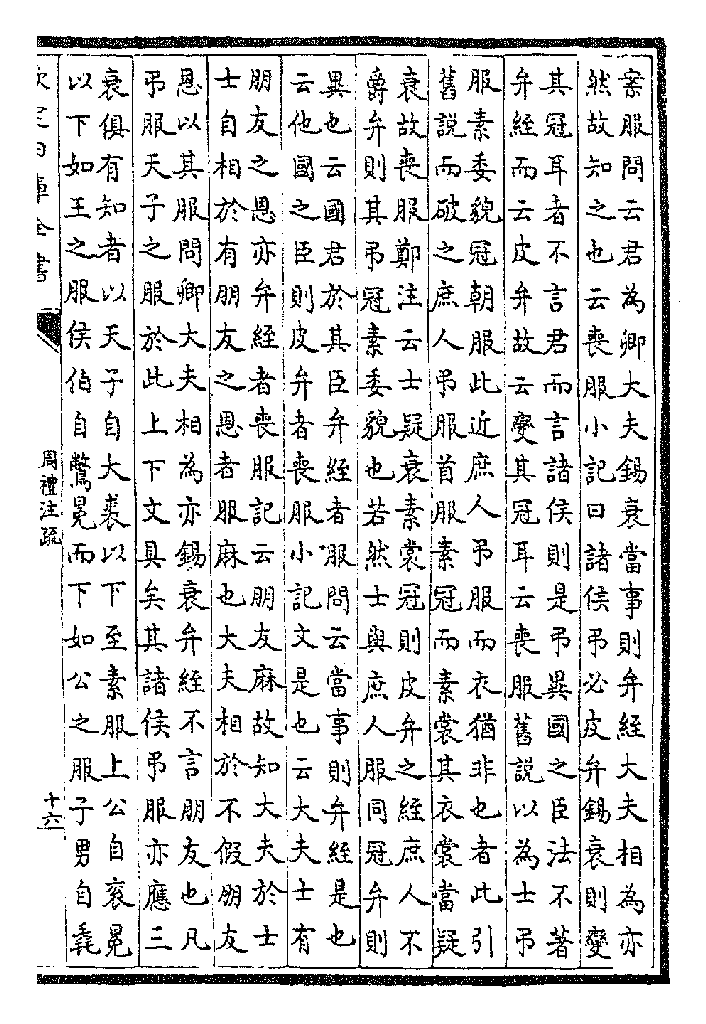 案服問云君為卿大夫錫衰當事則弁絰大夫相為亦
然故知之也云喪服小記曰諸侯弔必皮弁錫衰則變
其冠耳者不言君而言諸侯則是弔異國之臣法不著
弁絰而云皮弁故云變其冠耳云喪服舊說以為士弔
服素委貌冠朝服此近庶人弔服而衣猶非也者此引
舊說而破之庶人弔服首服素冠而素裳其衣裳當疑
衰故喪服鄭注云士疑衰素裳冠則皮弁之絰庶人不
爵弁則其弔冠素委貌也若然士與庶人服同冠弁則
異也云國君於其臣弁絰者服問云當事則弁絰是也
云他國之臣則皮弁者喪服小記文是也云大夫士有
朋友之恩亦弁絰者喪服記云朋友麻故知大夫於士
士自相於有朋友之恩者服麻也大夫相於不假朋友
恩以其服問卿大夫相為亦錫衰弁絰不言朋友也凡
弔服天子之服於此上下文具矣其諸侯弔服亦應三
衰俱有知者以天子自大裘以下至素服上公自衮冕
以下如王之服侯伯自鷩冕而下如公之服子男自毳
欽定四庫全書
周禮注疏
十六